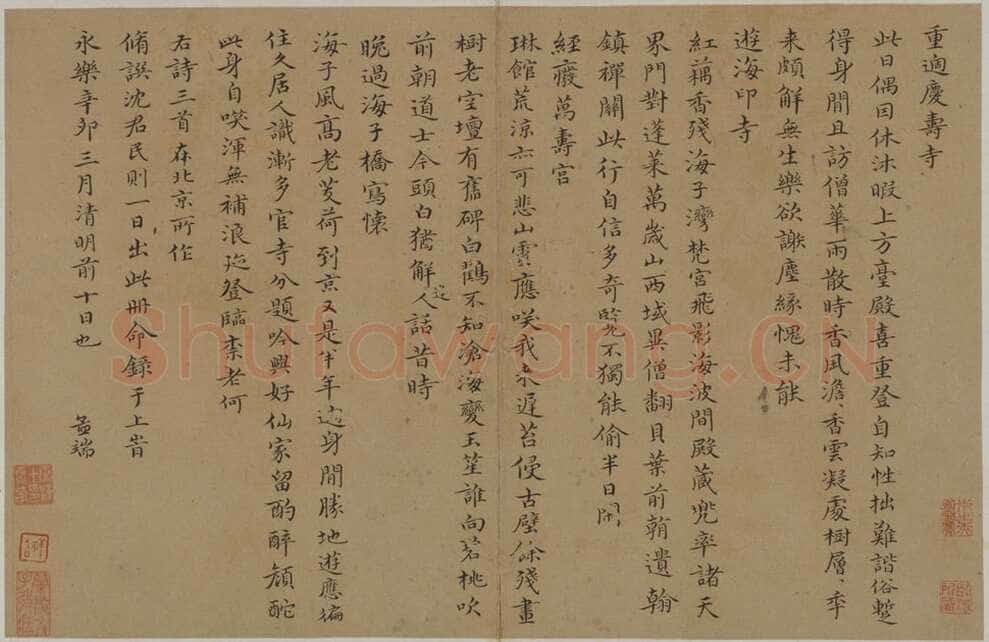 重適慶壽寺
此日偶因休沐暇上方臺殿喜重登自知性拙難諧俗暫
得身閒且訪僧華雨散時香風澹、香雲凝處樹層、年
来頗解無生樂欲謝塵緣愧未能
遊海印寺
紅藕香殘海子灣梵宮飛影海波間殿藏兜率諸天
界門對蓬萊萬歲山西域異僧翻貝葉前朝遺翰
鎮禪關此行自信多奇覽不獨能偷半日閒
經廢萬壽宮
琳館荒涼亦可悲山靈應咲我来遲苔侵古壁餘殘畫
樹老空壇有舊碑白鶴不知滄海變玉笙誰向碧桃吹
前朝道士今頭白猶解逢人話昔時
晚過海子橋寫懷
海子風高老芰荷到京又是半年過身閒勝地遊應徧
住久居人識漸多官寺分題吟興好仙家留酌醉顏酡
此身自咲渾無補浪跡登臨柰老何
右詩三首在北京所作
脩譔沈君民則一日出此冊命錄于上旹
永樂辛卯三月清明前十日也
孟端
Shufawang.CN